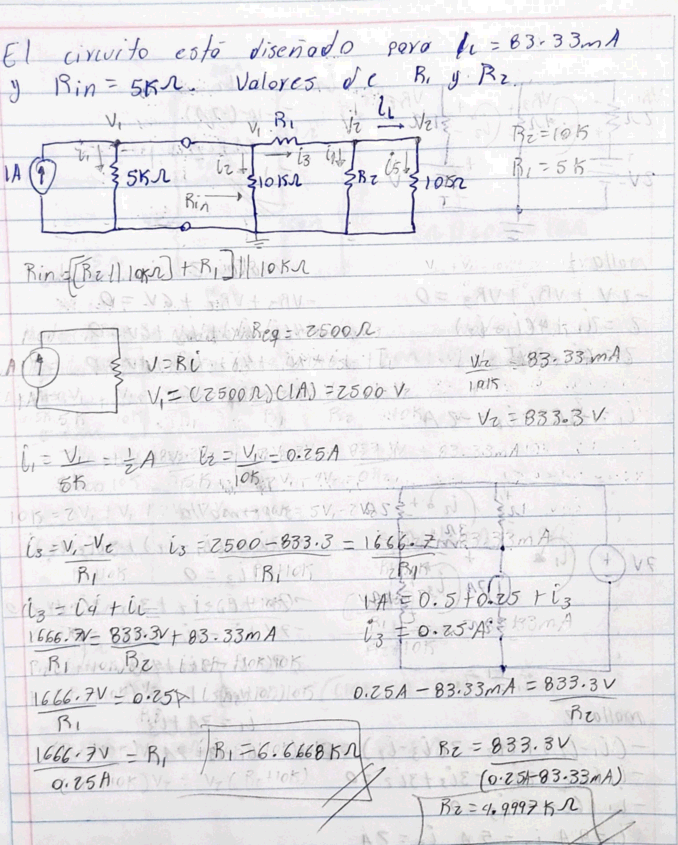 El circuito está diseñado para iL = 83.33mA
y Rin = 5KΩ. Valores de R1 y R2.
V1 V1 R1 V2 iL V2
R2=10K
R1=5K
1A i1 5KΩ i2 10KΩ i3 i4 R2 i5 10KΩ
Rin
Rin=[[R2||10KΩ]+R1]||10KΩ
Req = 2500Ω
A V=Ri
V1=(2500Ω)(1A)=2500 V
V2/10K = 83.33mA
V2=833.3 V
i1 = V1/5K = 1/2 A i2 = V1/10K = 0.25A
i3 = V1-V2/R1 i3 = 2500-833.3/R1 = 1666.7/R1
i3 = i4 + iL 1A = 0.5+0.25+i3
i3 = 0.25A
1666.7V/R1 = 833.3V/R2 + 83.33mA
1666.7V/R1 = 0.25A 0.25A-83.33mA = 833.3V/R2
1666.7V/0.25A = R1 R1=6.6668KΩ R2 = 833.3V/(0.25A-83.33mA)
R2=4.9997KΩ